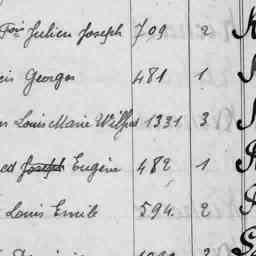 Fois Julien Joseph 709 2
cis Georges 481 1
Louis Marie Wilfrid 1331 3
ed Joseph Eugène 482 1
Louis Emile 594. 2